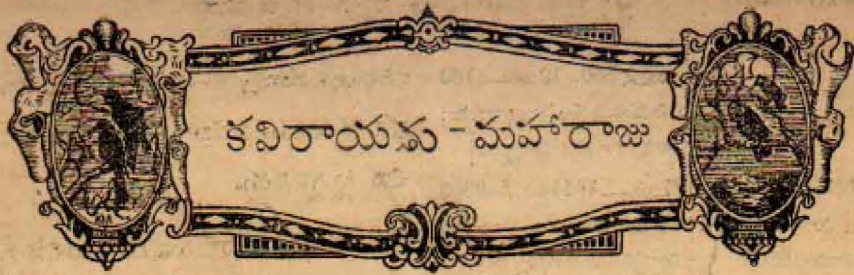 కవిరాయడు - మహారాజు